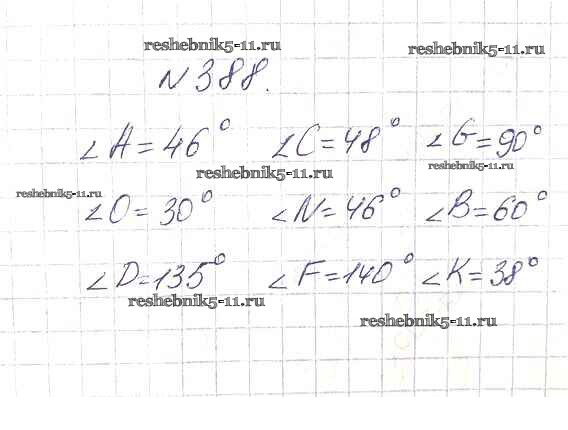 reshebnik5-11.ru
reshebnik5-11.ru
N 388.
∠A = 46° ∠C = 48° ∠G = 90°
reshebnik5-11.ru
reshebnik5-11.ru
reshebnik5-11.ru
∠O = 30° ∠N = 46° ∠B = 60°
∠D = 135° ∠F = 140° ∠K = 38°
reshebnik5-11.ru
reshebnik5-11.ru